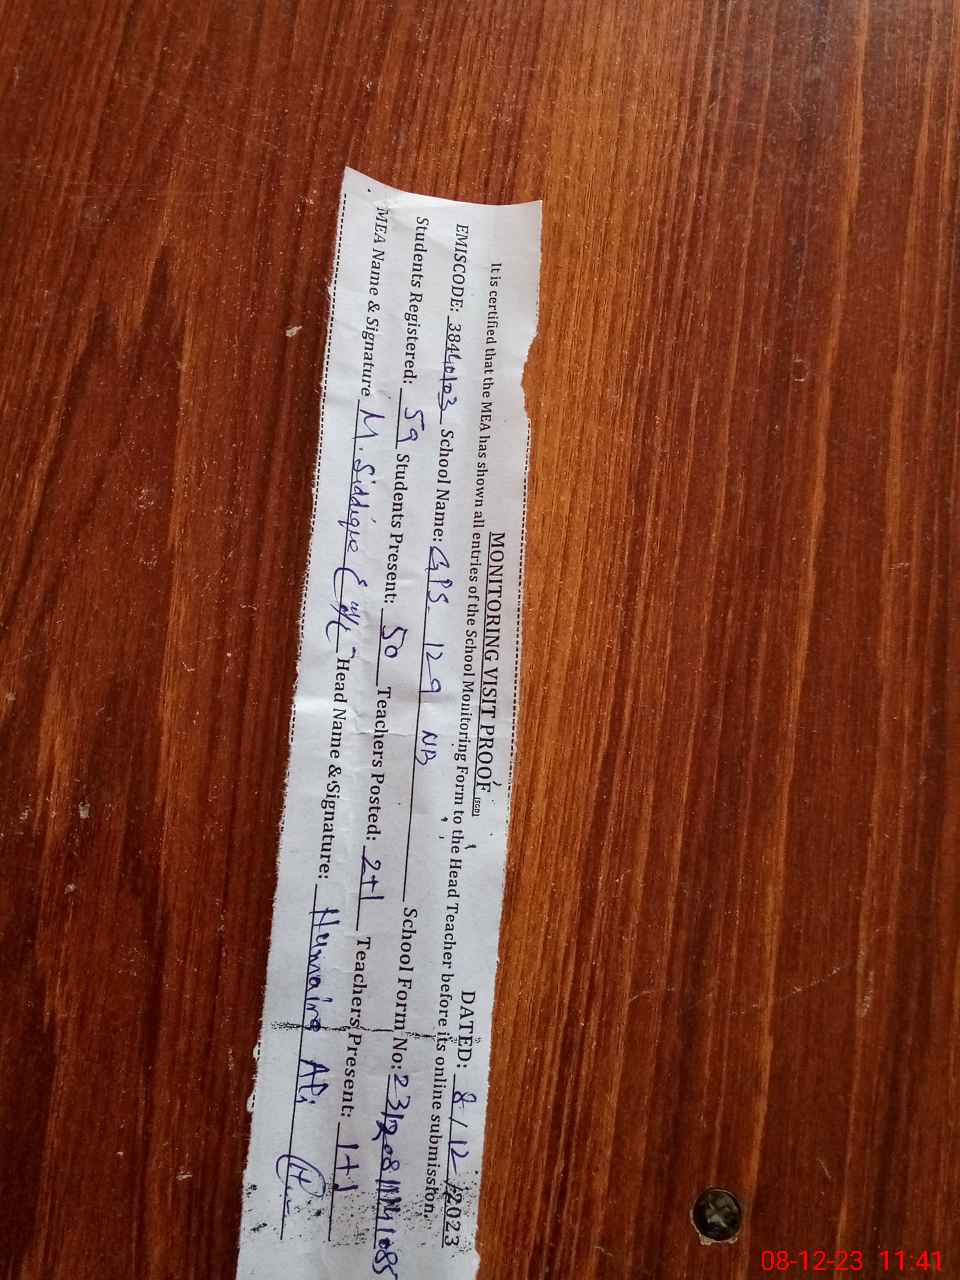 MONITORING VISIT PROOF (SGD) DATED: 8/12/2023
It is certified that the MEA has shown all entries of the School Monitoring Form to the Head Teacher before its online submission.
EMISCODE: 38440103 School Name: GPS. 129 NB School Form No:
Students Registered: 59 Students Present: 50 Teachers Posted: 2+1 Teachers Present: 1+1
MEA Name & Signature M. Siddique Head Name & Signature: Humaira Ali
08-12-23 11:41